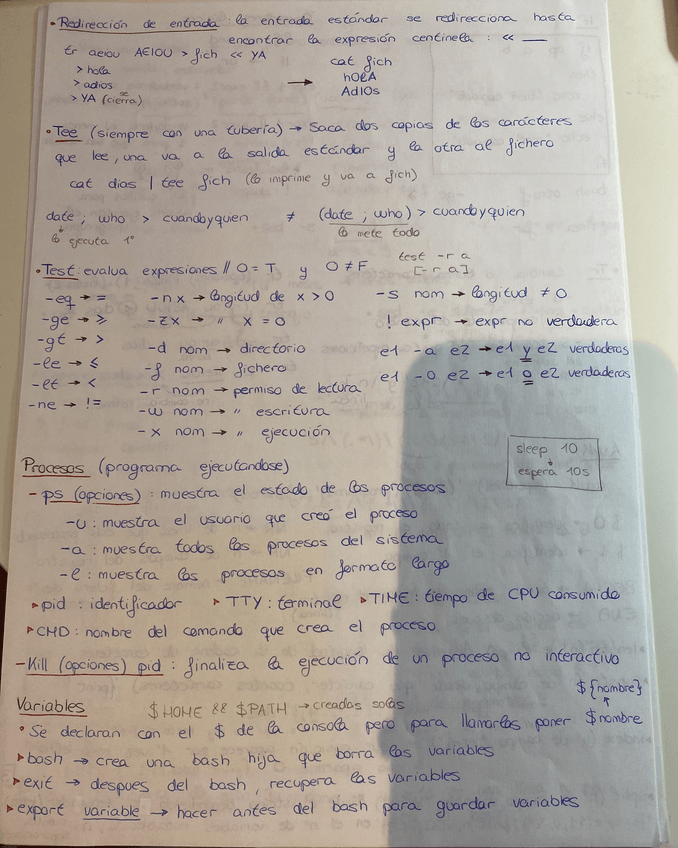 • Redirección de entrada: la entrada estándar se redirecciona hasta
encontrar la expresión centinela : << __
tr aeiou AEIOU > fich << YA
> hola
> adios
> YA (se cierra)
→
cat fich
hOlA
AdIOs
• Tee (siempre con una tubería) → Saca dos copias de los carácteres
que lee, una va a la salida estándar y la otra al fichero
cat dias | tee fich (lo imprime y va a fich)
date ; who > cuandoyquien ≠ (date ; who) > cuandoyquien
lo ejecuta 1º
lo mete todo
• Test: evalua expresiones // 0 = T y 0 ≠ F
test -r a
[-r a]
-eq → =
-ge → ≥
-gt → >
-le → ≤
-lt → <
-ne → !=
-n x → longitud de x > 0
-z x → " x = 0
-d nom → directorio
-f nom → fichero
-r nom → permiso de lectura
-w nom → " escritura
-x nom → " ejecución
-s nom → longitud ≠ 0
! expr → expr no verdadera
e1 -a e2 → e1 y e2 verdaderas
e1 -o e2 → e1 o e2 verdaderas
sleep 10
espera 10s
Procesos (programa ejecutandose)
- ps (opciones) : muestra el estado de los procesos
-u : muestra el usuario que creó el proceso
-a : muestra todos los procesos del sistema
-l : muestra los procesos en formato largo
▸ pid : identificador ▸ TTY : terminal ▸ TIME : tiempo de CPU consumido
▸ CMD : nombre del comando que crea el proceso
- Kill (opciones) pid : finaliza la ejecución de un proceso no interactivo
Variables $HOME && $PATH → creadas solas
${nombre}
• Se declaran con el $ de la consola pero para llamarlas poner $nombre
▸ bash → crea una bash hija que borra las variables
▸ exit → despues del bash, recupera las variables
▸ export variable → hacer antes del bash para guardar variables